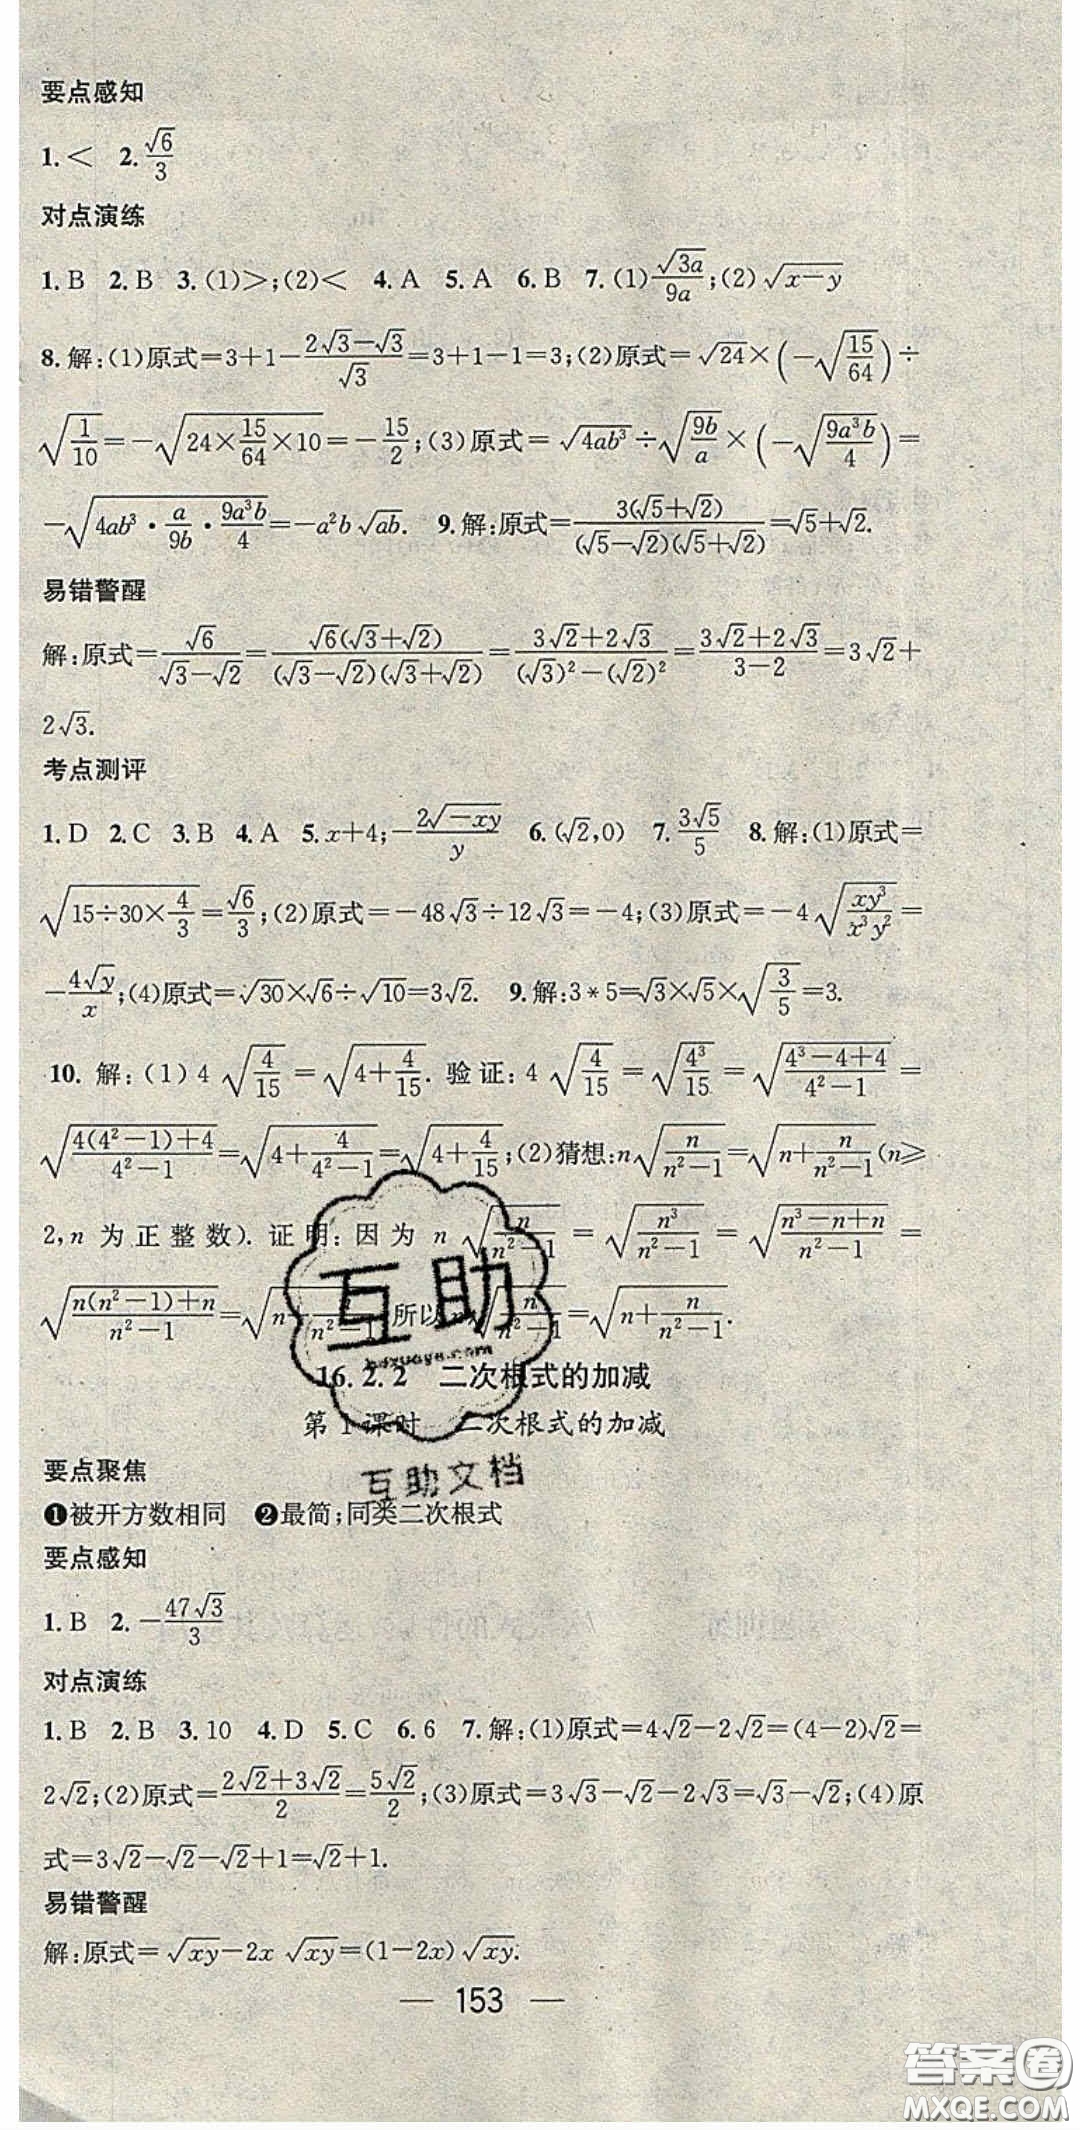 要点感知
1.< 2.√6/3
对点演练
1.B 2.B 3.(1)>;(2)< 4.A 5.A 6.B 7.(1)√(3a)/9a;(2)√(x-y)
8.解:(1)原式=3+1-(2√3-√3)/√3=3+1-1=3;(2)原式=√24×(-√(15/64))÷
√(1/10)=-√(24×15/64×10)=-15/2;(3)原式=√(4ab³)÷√(9b/a)×(-√(9a³b/4))=
-√(4ab³·a/9b·9a³b/4)=-a²b√(ab). 9.解:原式=3(√5+√2)/((√5-√2)(√5+√2))=√5+√2.
易错警醒
解:原式=√6/(√3-√2)=√6(√3+√2)/((√3-√2)(√3+√2))=(3√2+2√3)/((√3)²-(√2)²)=(3√2+2√3)/(3-2)=3√2+
2√3.
考点测评
1.D 2.C 3.B 4.A 5.x+4;-2√(-xy)/y 6.(√2,0) 7.3√5/5 8.解:(1)原式=
√(15÷30×4/3)=√6/3;(2)原式=-48√3÷12√3=-4;(3)原式=-4√(xy³/x³y²)=
-4√y/x;(4)原式=√30×√6÷√10=3√2. 9.解:3*5=√3×√5×√(3/5)=3.
10.解:(1)4√(4/15)=√(4+4/15).验证:4√(4/15)=√(4³/15)=√((4³-4+4)/(4²-1))=
√((4(4²-1)+4)/(4²-1))=√(4+4/(4²-1))=√(4+4/15);(2)猜想:n√(n/(n²-1))=√(n+n/(n²-1))(n≥
2,n为正整数).证明:因为n√(n/(n²-1))=√(n³/(n²-1))=√((n³-n+n)/(n²-1))=
√((n(n²-1)+n)/(n²-1))=√(n+n/(n²-1)) 所以n√(n/(n²-1))=√(n+n/(n²-1)).
互助
hdzuoye.com
16.2.2 二次根式的加减
第1课时 二次根式的加减
互助文档
要点聚焦
❶被开方数相同 ❷最简;同类二次根式
要点感知
1.B 2.-47√3/3
对点演练
1.B 2.B 3.10 4.D 5.C 6.6 7.解:(1)原式=4√2-2√2=(4-2)√2=
2√2;(2)原式=(2√2+3√2)/2=5√2/2;(3)原式=3√3-√2-2√3=√3-√2;(4)原
式=3√2-√2-√2+1=√2+1.
易错警醒
解:原式=√(xy)-2x√(xy)=(1-2x)√(xy).
— 153 —
答案圈
MXQE.COM